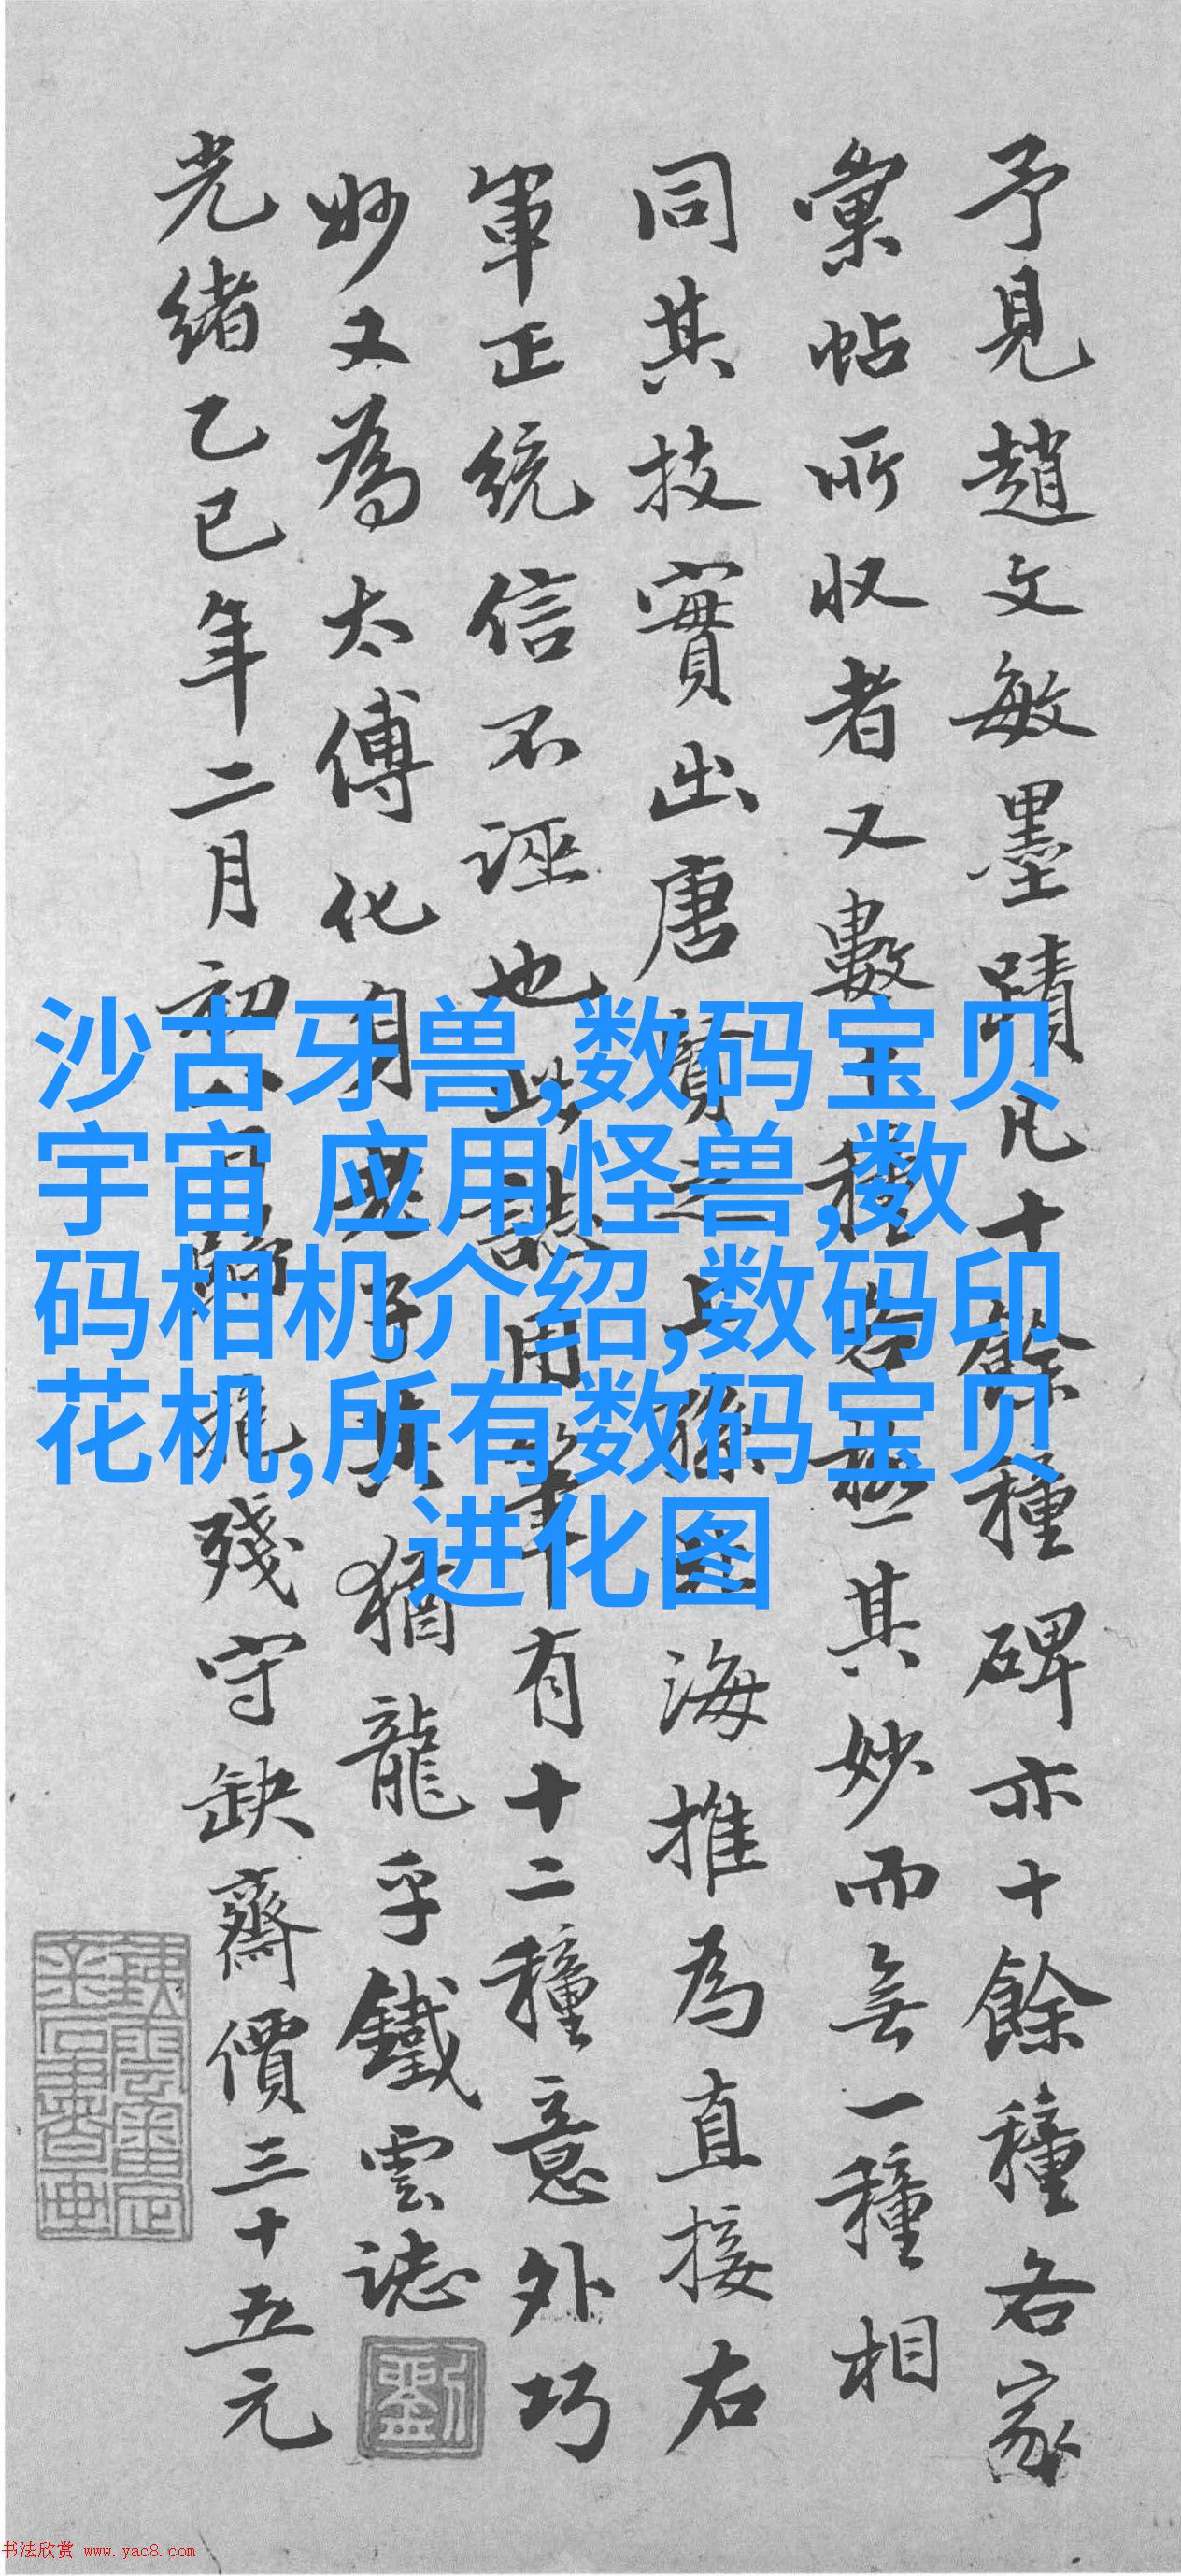 予見趙文敏墨蹟凡十餘種碑亦十餘種各家
彙帖所收者又數十種各極其妙而無一種相
同其技實出唐賢之上孫北海推為直接右
軍正統信不誣也此誌用筆有十二種意外巧
妙又為太傅化身老子其猶龍乎鐵雲誌
光緒乙巳年二月初 殘守缺齋價三十五元
劉
沙古牙兽,数码宝贝
宇宙 应用怪兽,数
码相机介绍,数码印
花机,所有数码宝贝
进化图
书法欣赏 www.yac8.com